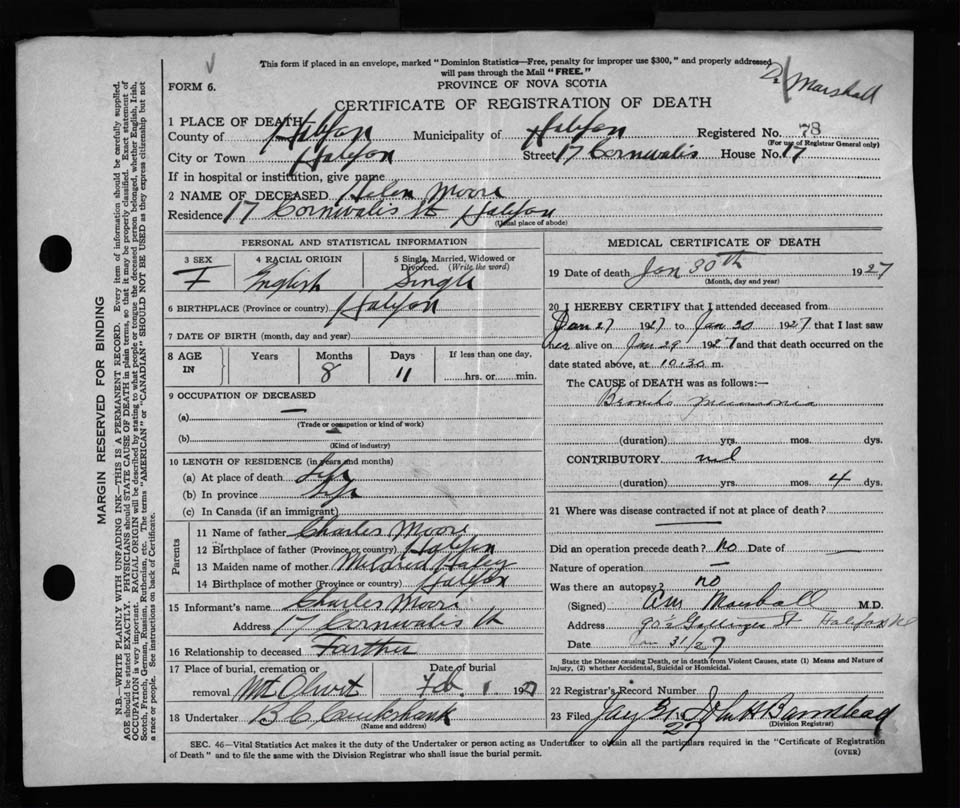 This form if placed in an envelope, marked "Dominion Statistics—Free, penalty for improper use $300," and properly addressed
will pass through the Mail "FREE."
Dr Marshall
FORM 6.
PROVINCE OF NOVA SCOTIA
CERTIFICATE OF REGISTRATION OF DEATH
1 PLACE OF DEATH
County of Halifax Municipality of Halifax Registered No. 78
(For use of Registrar General only)
City or Town Halifax Street 17 Cornwalis House No. 17
If in hospital or institution, give name
2 NAME OF DECEASED Helen Moore
Residence 17 Cornwalis St Halifax
(Usual place of abode)
PERSONAL AND STATISTICAL INFORMATION
3 SEX 4 RACIAL ORIGIN 5 Single, Married, Widowed or Divorced. (Write the word)
F English Single
6 BIRTHPLACE (Province or country) Halifax
7 DATE OF BIRTH (month, day and year)
8 AGE IN Years Months Days If less than one day,
8 11 hrs. or min.
9 OCCUPATION OF DECEASED
(a) —
(Trade or occupation or kind of work)
(b)
(Kind of industry)
10 LENGTH OF RESIDENCE (in years and months)
(a) At place of death Life
(b) In province Life
(c) In Canada (if an immigrant)
Parents
11 Name of father Charles Moore
12 Birthplace of father (Province or country) Halifax
13 Maiden name of mother Mildred
14 Birthplace of mother (Province or country) Halifax
15 Informant's name Charles Moore
Address 17 Cornwalis St
16 Relationship to deceased Farther
17 Place of burial, cremation or Date of burial
removal Mt Olivet Feb 1 1927
18 Undertaker B C Cruikshank
(Name and address)
MEDICAL CERTIFICATE OF DEATH
19 Date of death Jan 30th 1927
(Month, day and year)
20 I HEREBY CERTIFY that I attended deceased from
Jan 27 1927 to Jan 30 1927 that I last saw
her alive on Jan 29 1927 and that death occurred on the
date stated above, at 10.30 m.
The CAUSE of DEATH was as follows:—
Broncho pneumonia
(duration) yrs. mos. dys.
CONTRIBUTORY nil
(duration) yrs. mos. 4 dys.
21 Where was disease contracted if not at place of death?
—
Did an operation precede death? no Date of —
Nature of operation —
Was there an autopsy? no
(Signed) Marshall M.D.
Address St Halifax
Date Jan 31/27
State the Disease causing Death, or in death from Violent Causes, state (1) Means and Nature of
Injury, (2) whether Accidental, Suicidal or Homicidal.
22 Registrar's Record Number
23 Filed Jay 31 1927 John H Barnstead
(Division Registrar)
SEC. 46—Vital Statistics Act makes it the duty of the Undertaker or person acting as Undertaker to obtain all the particulars required in the "Certificate of Registration
of Death" and to file the same with the Division Registrar who shall issue the burial permit.
(OVER)
MARGIN RESERVED FOR BINDING
N.B.—WRITE PLAINLY WITH UNFADING INK—THIS IS A PERMANENT RECORD. Every item of information should be carefully supplied.
AGE should be stated EXACTLY. PHYSICIANS should STATE CAUSE OF DEATH in plain terms, so that it may be properly classified. Exact statement of
OCCUPATION is very important. RACIAL ORIGIN will be described by stating to what people or tongue the deceased person belonged, whether English, Irish,
Scotch, French, German, Russian, Ruthenian, etc. The terms "AMERICAN" or "CANADIAN" SHOULD NOT BE USED as they express citizenship but not
a race or people. See instructions on back of Certificate.